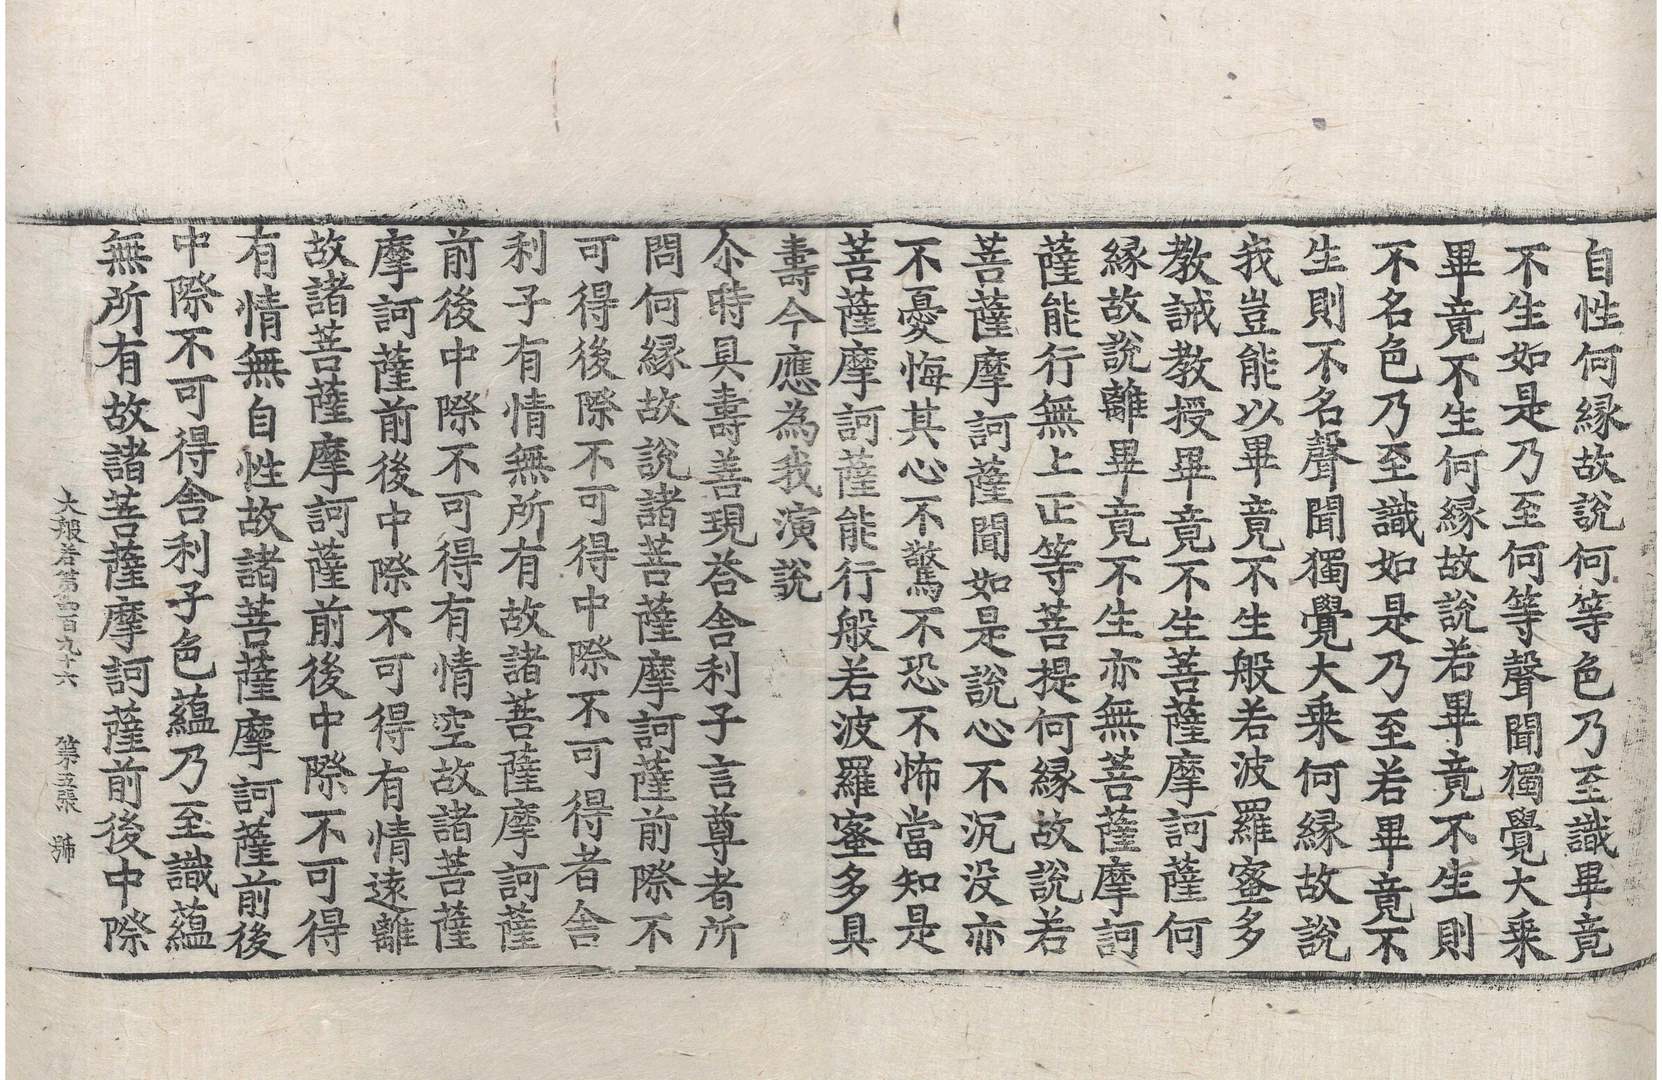 自性何縁故說何等色乃至識畢竟
不生如是乃至何等聲聞獨覺大乗
畢竟不生何縁故說若畢竟不生則
不名色乃至識如是乃至若畢竟不
生則不名聲聞獨覺大乗何縁故說
我豈能以畢竟不生般若波羅蜜多
教誡教授畢竟不生菩薩摩訶薩何
縁故說離畢竟不生亦無菩薩摩訶
薩能行無上正等菩提何縁故說若
菩薩摩訶薩聞如是說心不沉没亦
不憂悔其心不驚不恐不怖當知是
菩薩摩訶薩能行般若波羅蜜多具
壽今應為我演說
尒時具壽善現荅舍利子言尊者所
問何縁故說諸菩薩摩訶薩前際不
可得後際不可得中際不可得者舍
利子有情無所有故諸菩薩摩訶薩
前後中際不可得有情空故諸菩薩
摩訶薩前後中際不可得有情遠離
故諸菩薩摩訶薩前後中際不可得
有情無自性故諸菩薩摩訶薩前後
中際不可得舍利子色蘊乃至識蘊
無所有故諸菩薩摩訶薩前後中際
大般若第四百九十六 第五張 號